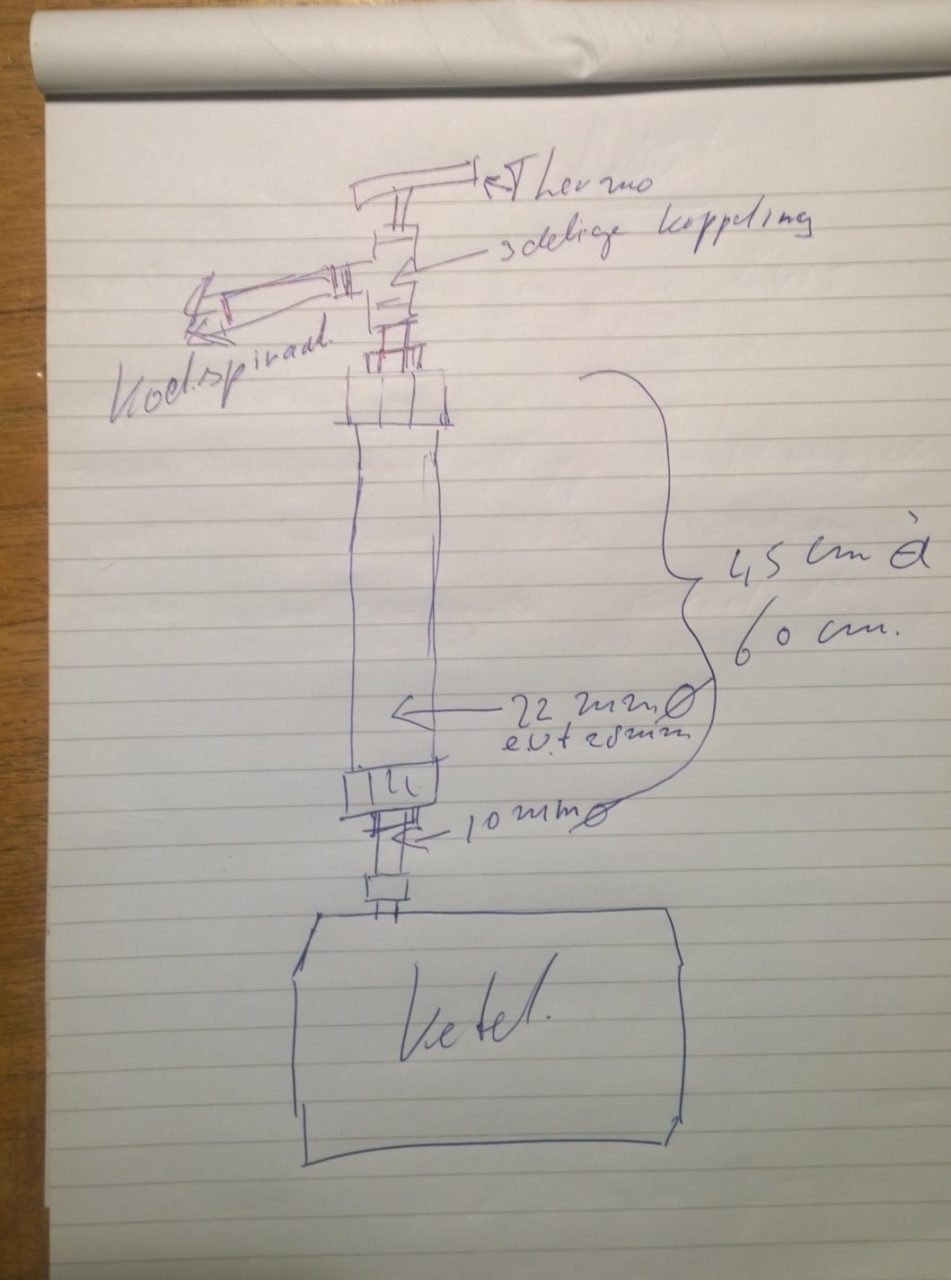 Thermo
3 delige koppeling
Koelspiraal
45 cm à
60 cm.
22 mm Ø
evt 28 mm
10 mm Ø
Ketel.